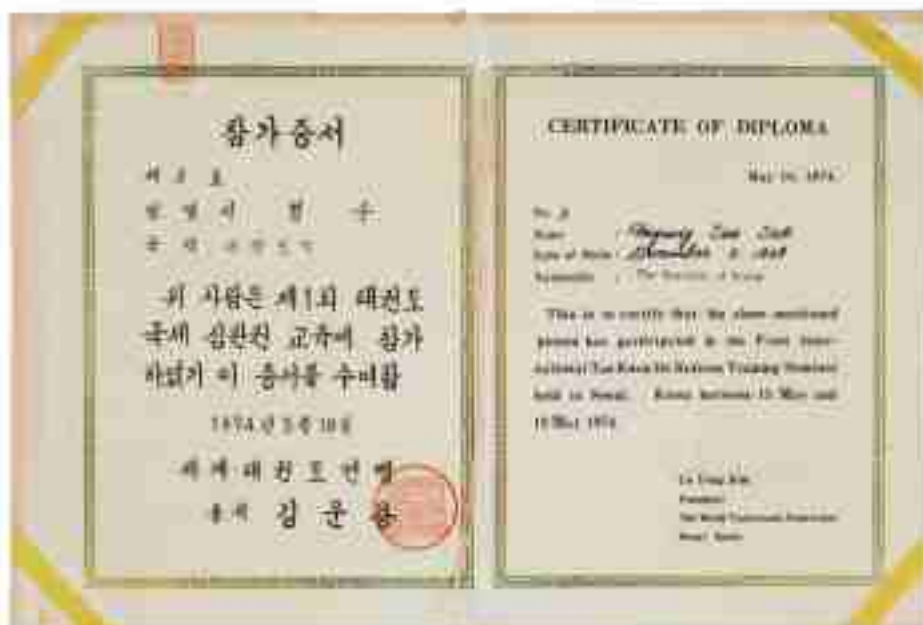 참가증서
제 2 호
성 명 서 명 수
국 적 대한민국
위 사람은 제1회 태권도
국제 심판원 교육에 참가
하였기 이 증서를 수여함
1974년 5월 18일
세계태권도연맹
총재 김운용
CERTIFICATE OF DIPLOMA
May 18, 1974
No.
Name :
Date of Birth :
Nationality : The Republic of Korea
This is to certify that the above mentioned
person has participated in the First Inter-
national Tae Kwon Do Referee Training Seminar
held in Seoul, Korea between 15 May and
18 May 1974.
Un Yong Kim
President
The World Taekwondo Federation
Seoul, Korea